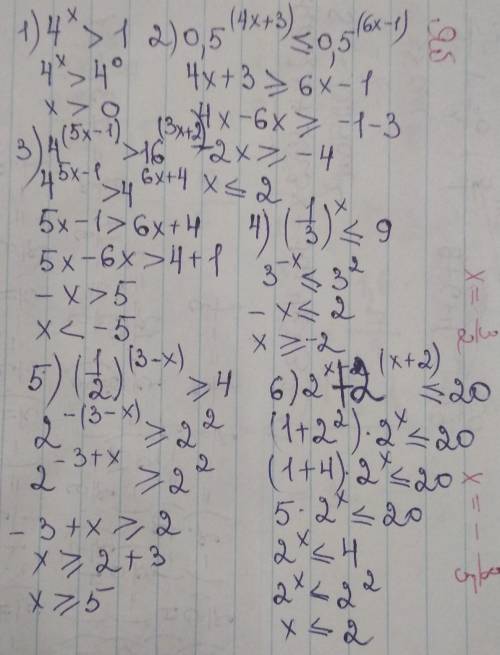 1) 4^x > 1
4^x > 4^0
x > 0
2) 0,5^(4x+3) ≤ 0,5^(6x-1)
4x+3 ≥ 6x-1
4x-6x ≥ -1-3
-2x ≥ -4
x ≤ 2
3) 4^(5x-1) > 16^(3x+2)
4^5x-1 > 4^6x+4
5x-1 > 6x+4
5x-6x > 4+1
-x > 5
x < -5
4) (1/3)^x ≤ 9
3^-x ≤ 3^2
-x ≤ 2
x ≥ -2
5) (1/2)^(3-x) ≥ 4
2^-(3-x) ≥ 2^2
2^-3+x ≥ 2^2
-3+x ≥ 2
x ≥ 2+3
x ≥ 5
6) 2^x + 2^(x+2) ≤ 20
(1+2^2)·2^x ≤ 20
(1+4)·2^x ≤ 20
5·2^x ≤ 20
2^x ≤ 4
2^x ≤ 2^2
x ≤ 2